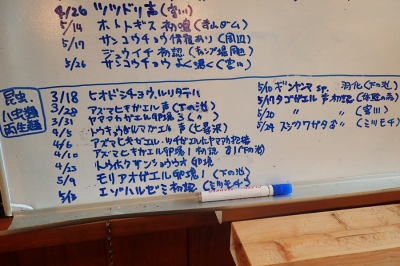 4/26 ツツドリ 声 (宮川)
5/14 ホトトギス 初鳴
5/17 サンコウチョウ 情報あり (周辺)
ジュウイチ 初認 (キャンプ場周辺)
5/26 サンコウチョウ よく鳴く (宮川)
昆虫
ハ虫類
両生類
3/18 ヒオドシチョウ、ルリタテハ
3/28 アズマヒキガエル 声 (下の池)
3/31 ヤマアカガエル 卵塊
4/5 トウキョウダルマガエル 声
4/6 アズマヒキガエル・ツチガエル
4/10 アズマヒキガエル 卵塊1 初認
4/23 トウホクサンショウウオ 卵塊
5/9 モリアオガエル 卵塊1 (下の池)
5/13 エゾハルゼミ 初認 (ミツモチ)
5/10 ギンヤンマ sp. 羽化 (下の池)
5/17 タゴガエル 声 初認
5/20 〃 (宮川)
5/24 (ミツモチ)